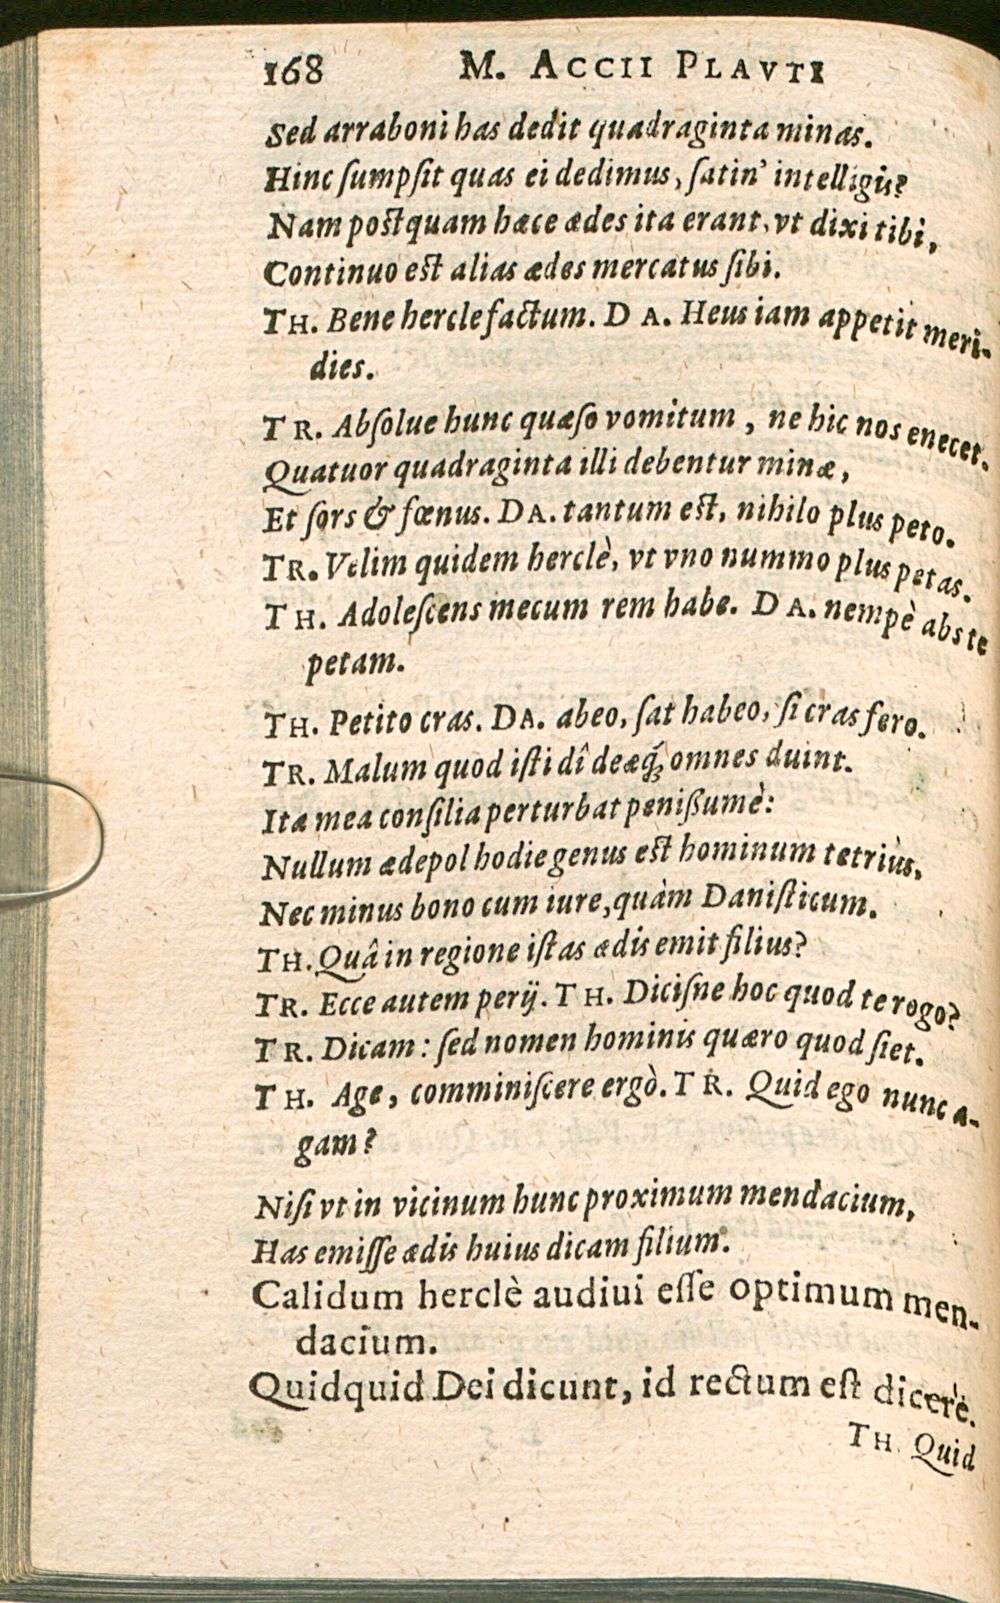 168 M. ACCII PLAVTI
Sed arraboni has dedit quadraginta minas.
Hinc ſumpſit quas ei dedimus, ſatin' intelligis?
Nam poſtquam hæce ædes ita erant, vt dixi tibi,
Continuo eſt alias ædes mercatus ſibi.
TH. Bene hercle factum. DA. Heus iam appetit meri-
dies.
TR. Abſolue hunc quæſo vomitum, ne hic nos enecet.
Quatuor quadraginta illi debentur minæ,
Et ſors & fœnus. DA. tantum eſt, nihilo plus peto.
TR. Velim quidem herclè, vt vno nummo plus petas.
TH. Adoleſcens mecum rem habe. DA. nempè abs te
petam.
TH. Petito cras. DA. abeo, ſat habeo, ſi cras fero.
TR. Malum quod iſti dî deæq́; omnes duint.
Ita mea conſilia perturbat penißumè:
Nullum ædepol hodie genus eſt hominum tetriùs,
Nec minus bono cum iure, quàm Daniſticum.
TH. Quâ in regione iſtas ædis emit filius?
TR. Ecce autem perij. TH. Diciſne hoc quod te rogo?
TR. Dicam: ſed nomen hominis quæro quod ſiet.
TH. Age, comminiſcere ergò. TR. Quid ego nunc a-
gam?
Niſi vt in vicinum hunc proximum mendacium,
Has emiſſe ædis huius dicam filium.
Calidum herclè audiui eſſe optimum men-
dacium.
Quidquid Dei dicunt, id rectum eſt dicerè.
TH. Quid